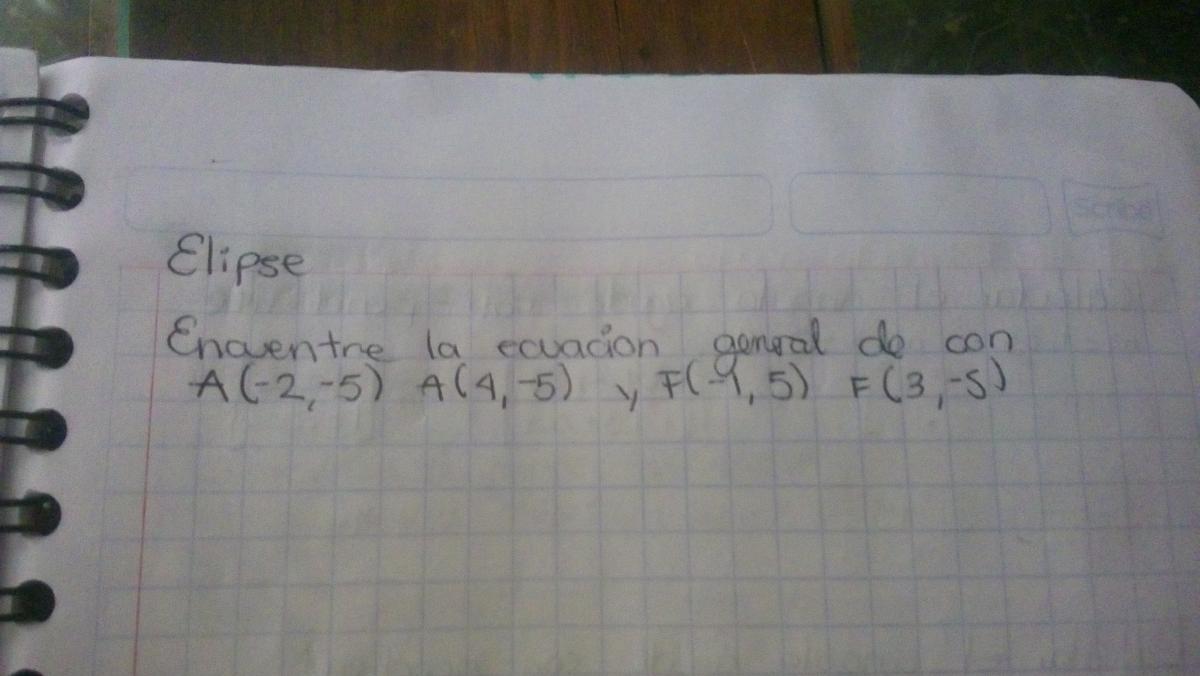 Scribe
Elipse
Encuentre la ecuacion general de con
A(-2,-5) A(4,-5) y F(-1,5) F(3,-5)